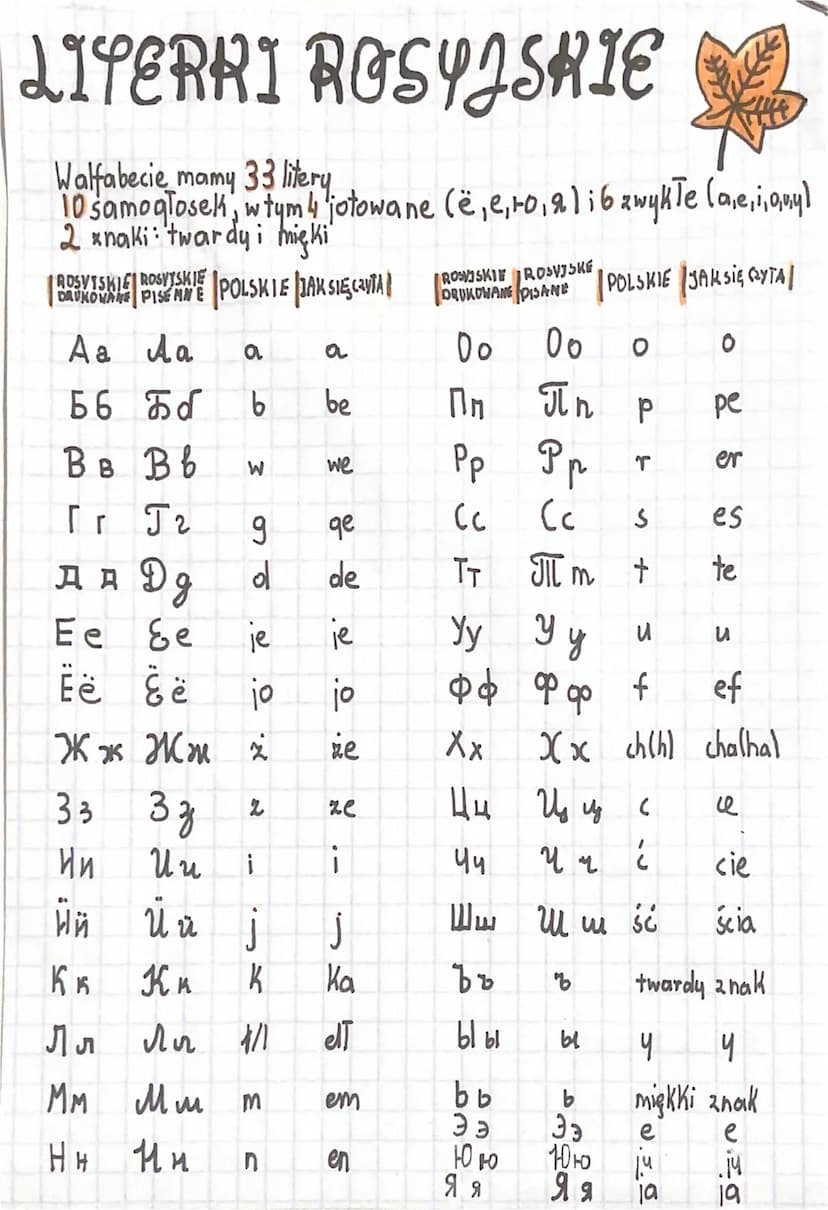 LITERKI ROSYJSKIE
W alfabecie mamy 33 litery
10 samogłosek, w tym 4 jotowane (ё, е, ю, я) i 6 zwykłe (a, e, i, o, u, y)
2 znaki: twardy i mięki
ROSYJSKIE DRUKOWANE | ROSYJSKIE PISEMNE | POLSKIE | JAK SIĘ CZYTA
Аа Аа a a
Бб Бб b be
Вв Вв w we
Гг Гг g ge
Дд Дд d de
Ее Ее je je
Ёё Ёё jo jo
Жж Жж ż że
Зз Зз z ze
Ии Ии i i
Йй Йй j j
Кк Кк k ka
Лл Лл ł/l eł
Мм Мм m em
Нн Нн n en
ROSYJSKIE DRUKOWANE | ROSYJSKE PISANE | POLSKIE | JAK SIĘ CZYTA
Оо Оо o o
Пп Пп p pe
Рр Рр r er
Сс Сс s es
Тт Тт t te
Уу Уу u u
Фф Фф f ef
Хх Хх ch(h) cha(ha)
Цц Цц c ce
Чч Чч ć cie
Шш Шш ść ścia
Ъъ ъ twardy znak
Ыы ы y y
Ьь ь miękki znak
Ээ Ээ e e
Юю Юю ju ju
Яя Яя ja ja